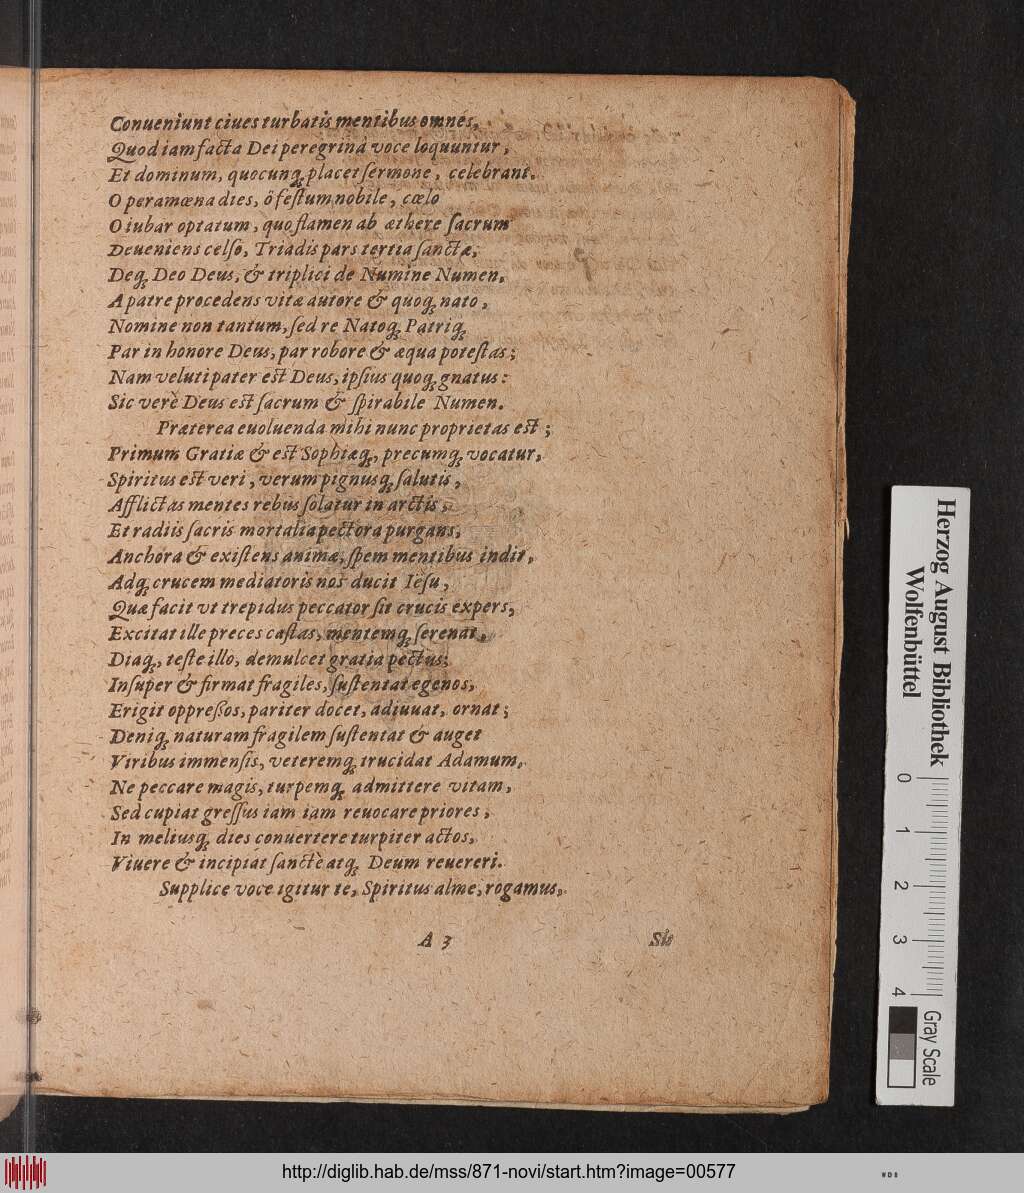 Conueniunt ciues turbatis mentibus omnes,
Quod iam facta Dei peregrinâ voce loquuntur,
Et dominum, quocunq; placet sermone, celebrant.
O peramœna dies, ô festum nobile, cœlo
O iubar optatum, quo flamen ab æthere sacrum
Deueniens celso, Triadis pars tertia sanctæ,
Deq; Deo Deus, & triplici de Numine Numen,
A patre procedens vitæ autore & quoq; nato,
Nomine non tantum, sed re Natoq; Patriq;
Par in honore Deus, par robore & æqua potestas;
Nam veluti pater est Deus, ipsius quoq; gnatus:
Sic verè Deus est sacrum & spirabile Numen.
Præterea euoluenda mihi nunc proprietas est;
Primum Gratiæ & est Sophiæq;, precumq; vocatur,
Spiritus est veri, verum pignusq; salutis,
Afflictas mentes rebus solatur in arctis,
Et radiis sacris mortalia pectora purgans,
Anchora & existens animæ, spem mentibus indit,
Adq; crucem mediatoris nos ducit Iësu,
Quæ facit vt trepidus peccator sit crucis expers,
Excitat ille preces castas, mentemq; serenat,
Diaq;, teste illo, demulcet gratia pectus;
Insuper & firmat fragiles, sustentat egenos,
Erigit oppreßos, pariter docet, adiuuat, ornat;
Deniq; naturam fragilem sustentat & auget
Viribus immensis, veteremq; trucidat Adamum,
Ne peccare magis, turpemq; admittere vitam,
Sed cupiat gressus iam iam reuocare priores,
In meliusq; dies conuertere turpiter actos,
Viuere & incipiat sanctè atq; Deum reuereri.
Supplice voce igitur te, Spiritus alme, rogamus,
A 3 Sis
Herzog August Bibliothek
Wolfenbüttel
0 1 2 3 4
Gray Scale
http://diglib.hab.de/mss/871-novi/start.htm?image=00577